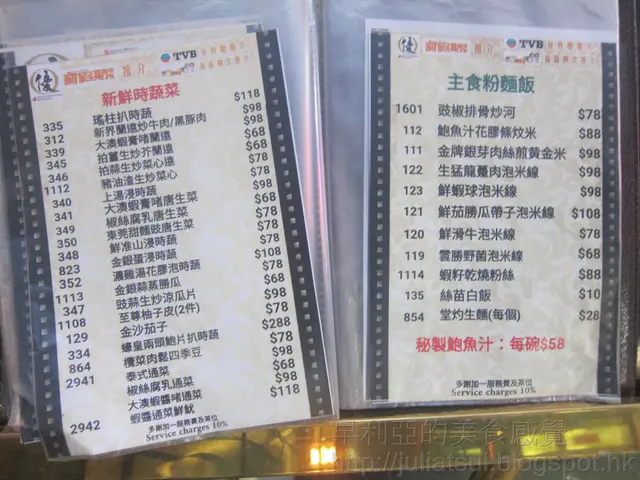 優
推介
TVB
新鮮時蔬菜
瑤柱扒時蔬 $118
335 新界蘭遠炒牛肉/黑豚肉 $98
312 大澳蝦膏啫蘭遠 $98
339 拍薑生炒芥蘭遠 $68
345 拍蒜生炒菜心遠 $78
346 豬油渣生炒菜心 $78
1112 上湯浸時蔬 $98
340 大澳蝦膏啫唐生菜
341 椒絲腐乳唐生菜
349 東莞甜麵豉唐生菜
350 鮮准山浸時蔬
348 金銀蛋浸時蔬 $78
823 濃雞湯花膠泡時蔬 $108
352 金銀蒜蒸勝瓜 $68
1113 豉蒜生炒涼瓜片
347 至尊柚子皮(2件) $98
1108 金沙茄子 $78
129 蠔皇兩頭鮑片扒時蔬 $288
334 欖菜肉鬆四季豆 $78
864 泰式通菜 $68
2941 椒絲腐乳通菜 $68
大澳蝦醬啫通菜 $98
2942 蝦醬通菜鮮魷 $118
多謝加一服務費及茶位
Service charges 10%
優
推介
TVB
主食粉麵飯
1601 豉椒排骨炒河 $78
112 鮑魚汁花膠條炆米 $88
111 金牌銀芽肉絲煎黃金米 $98
122 生猛龍躉肉泡米線 $98
123 鮮蝦球泡米線 $98
121 鮮茄勝瓜帶子泡米線 $108
120 鮮滑牛泡米線 $78
119 雲勝野菌泡米線 $68
1114 蝦籽乾燒粉絲 $88
135 絲苗白飯 $10
854 堂灼生麵(每個) $28
秘製鮑魚汁：每碗$58
多謝加一服務費及茶位
Service charges 10%
早利亞的美食感覺
http://juliatsui.blogspot.hk